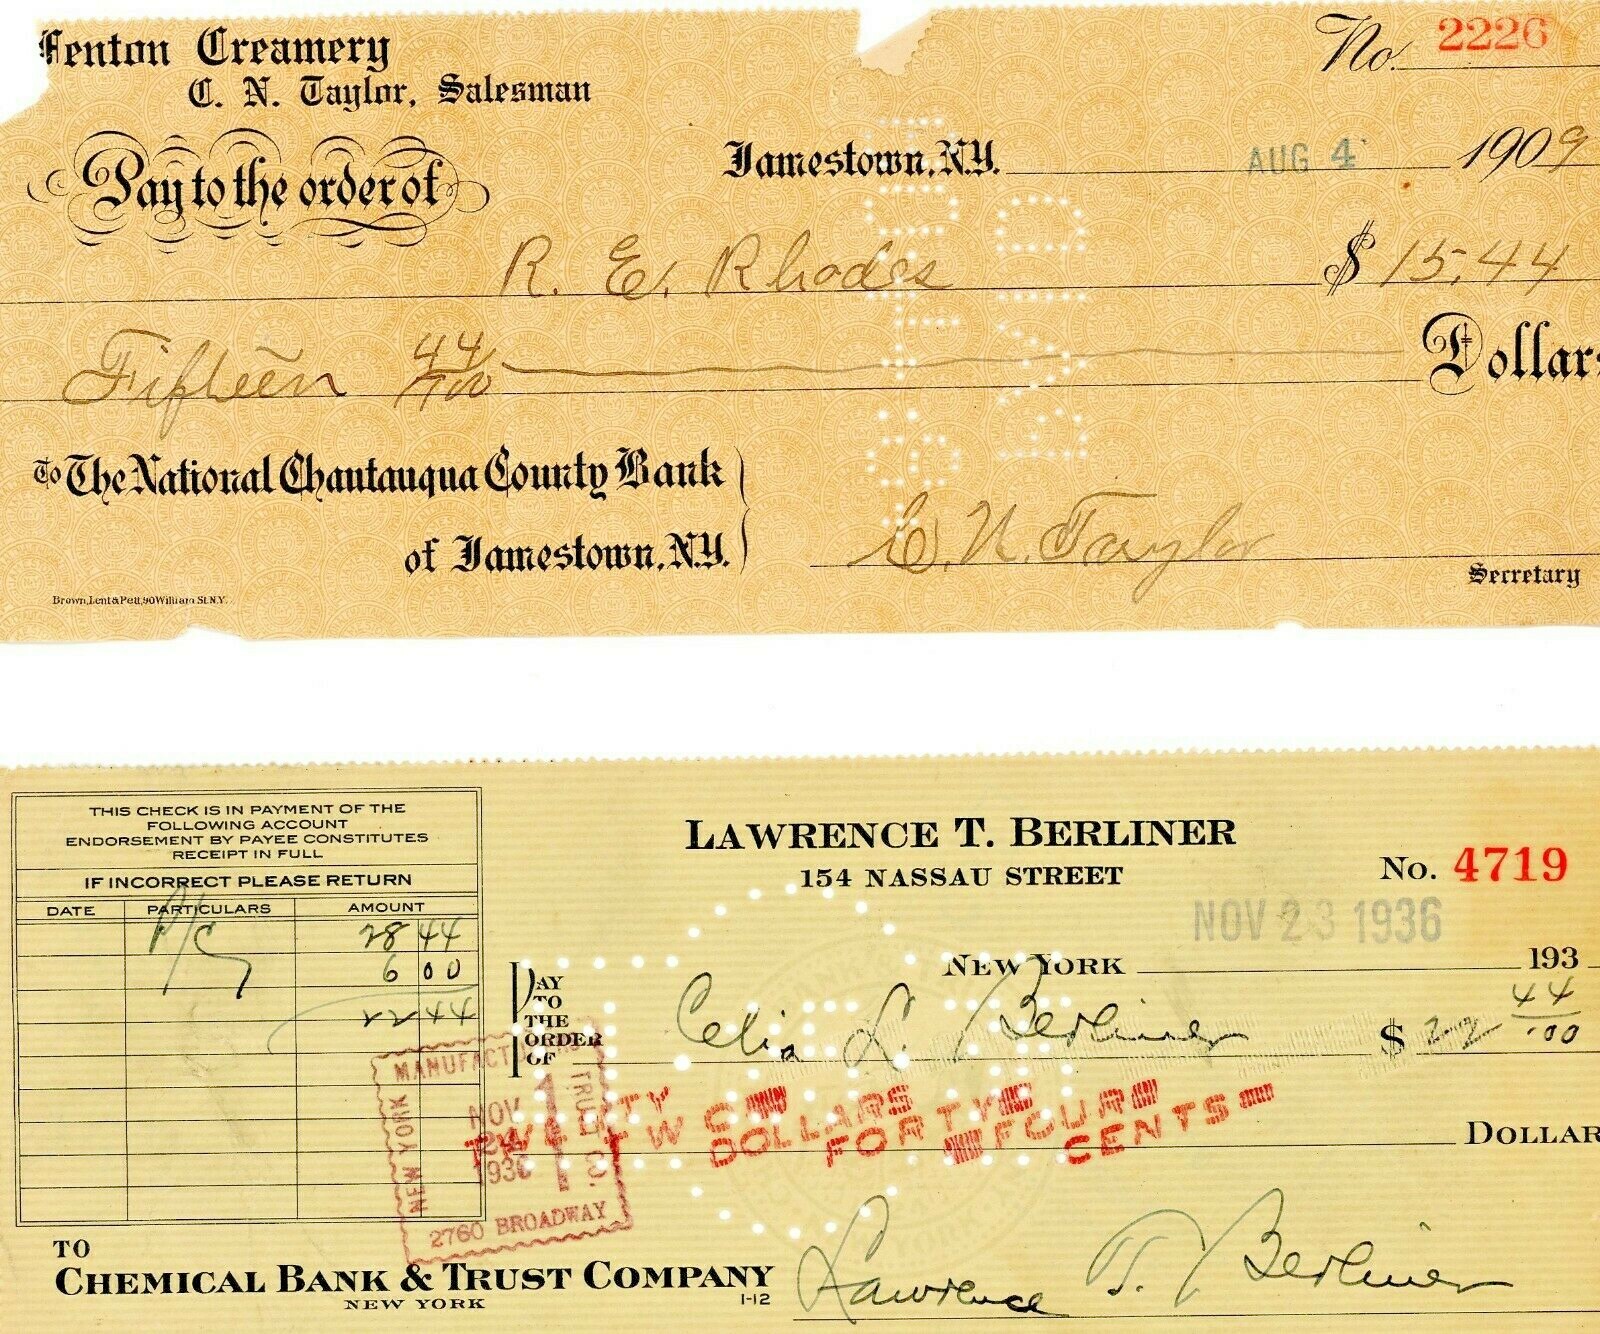 Fenton Creamery
C. N. Taylor, Salesman
No. 2226
Pay to the order of
Jamestown, N.Y. AUG 4 1909
R. E. Rhodes $ 15.44
Fifteen 44/100 Dollars
To The National Chautauqua County Bank
of Jamestown, N.Y.
C. N. Taylor
Secretary
Brown, Lent & Pett, 90 William St. N.Y.
PAID
THIS CHECK IS IN PAYMENT OF THE
FOLLOWING ACCOUNT
ENDORSEMENT BY PAYEE CONSTITUTES
RECEIPT IN FULL
IF INCORRECT PLEASE RETURN
DATE PARTICULARS AMOUNT
P/C 28 44
6 00
22 44
LAWRENCE T. BERLINER
154 NASSAU STREET
No. 4719
NOV 23 1936
NEW YORK 193
PAY
TO
THE
ORDER
OF
Celia L. Berliner $ 22 44/100
TWENTY TWO DOLLARS FORTY FOUR CENTS
DOLLAR
MANUFACTURERS TRUST CO.
NEW YORK
NOV
24
1936
2760 BROADWAY
TO
CHEMICAL BANK & TRUST COMPANY
NEW YORK 1-12
Lawrence T. Berliner